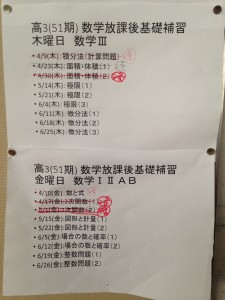 高3(51期) 数学放課後基礎補習
木曜日 数学Ⅲ
・4/9(木): 積分法(計算問題)
・4/23(木): 面積・体積(1)
・4/30(木): 面積・体積(2)
・5/14(木): 極限(1)
・5/21(木): 極限(2)
・6/4(木): 極限(3)
・6/11(木): 微分法(1)
・6/18(木): 微分法(2)
・6/25(木): 微分法(3)
高3(51期) 数学放課後基礎補習
金曜日 数学ⅠⅡAB
・4/10(金): 数と式
・4/17(金): 2次関数(1)
・5/1(金): 2次関数(2)
・5/15(金): 図形と計量(1)
・5/22(金): 図形と計量(2)
・6/5(金): 場合の数と確率(1)
・6/12(金): 場合の数と確率(2)
・6/19(金): 整数問題(1)
・6/26(金): 整数問題(2)